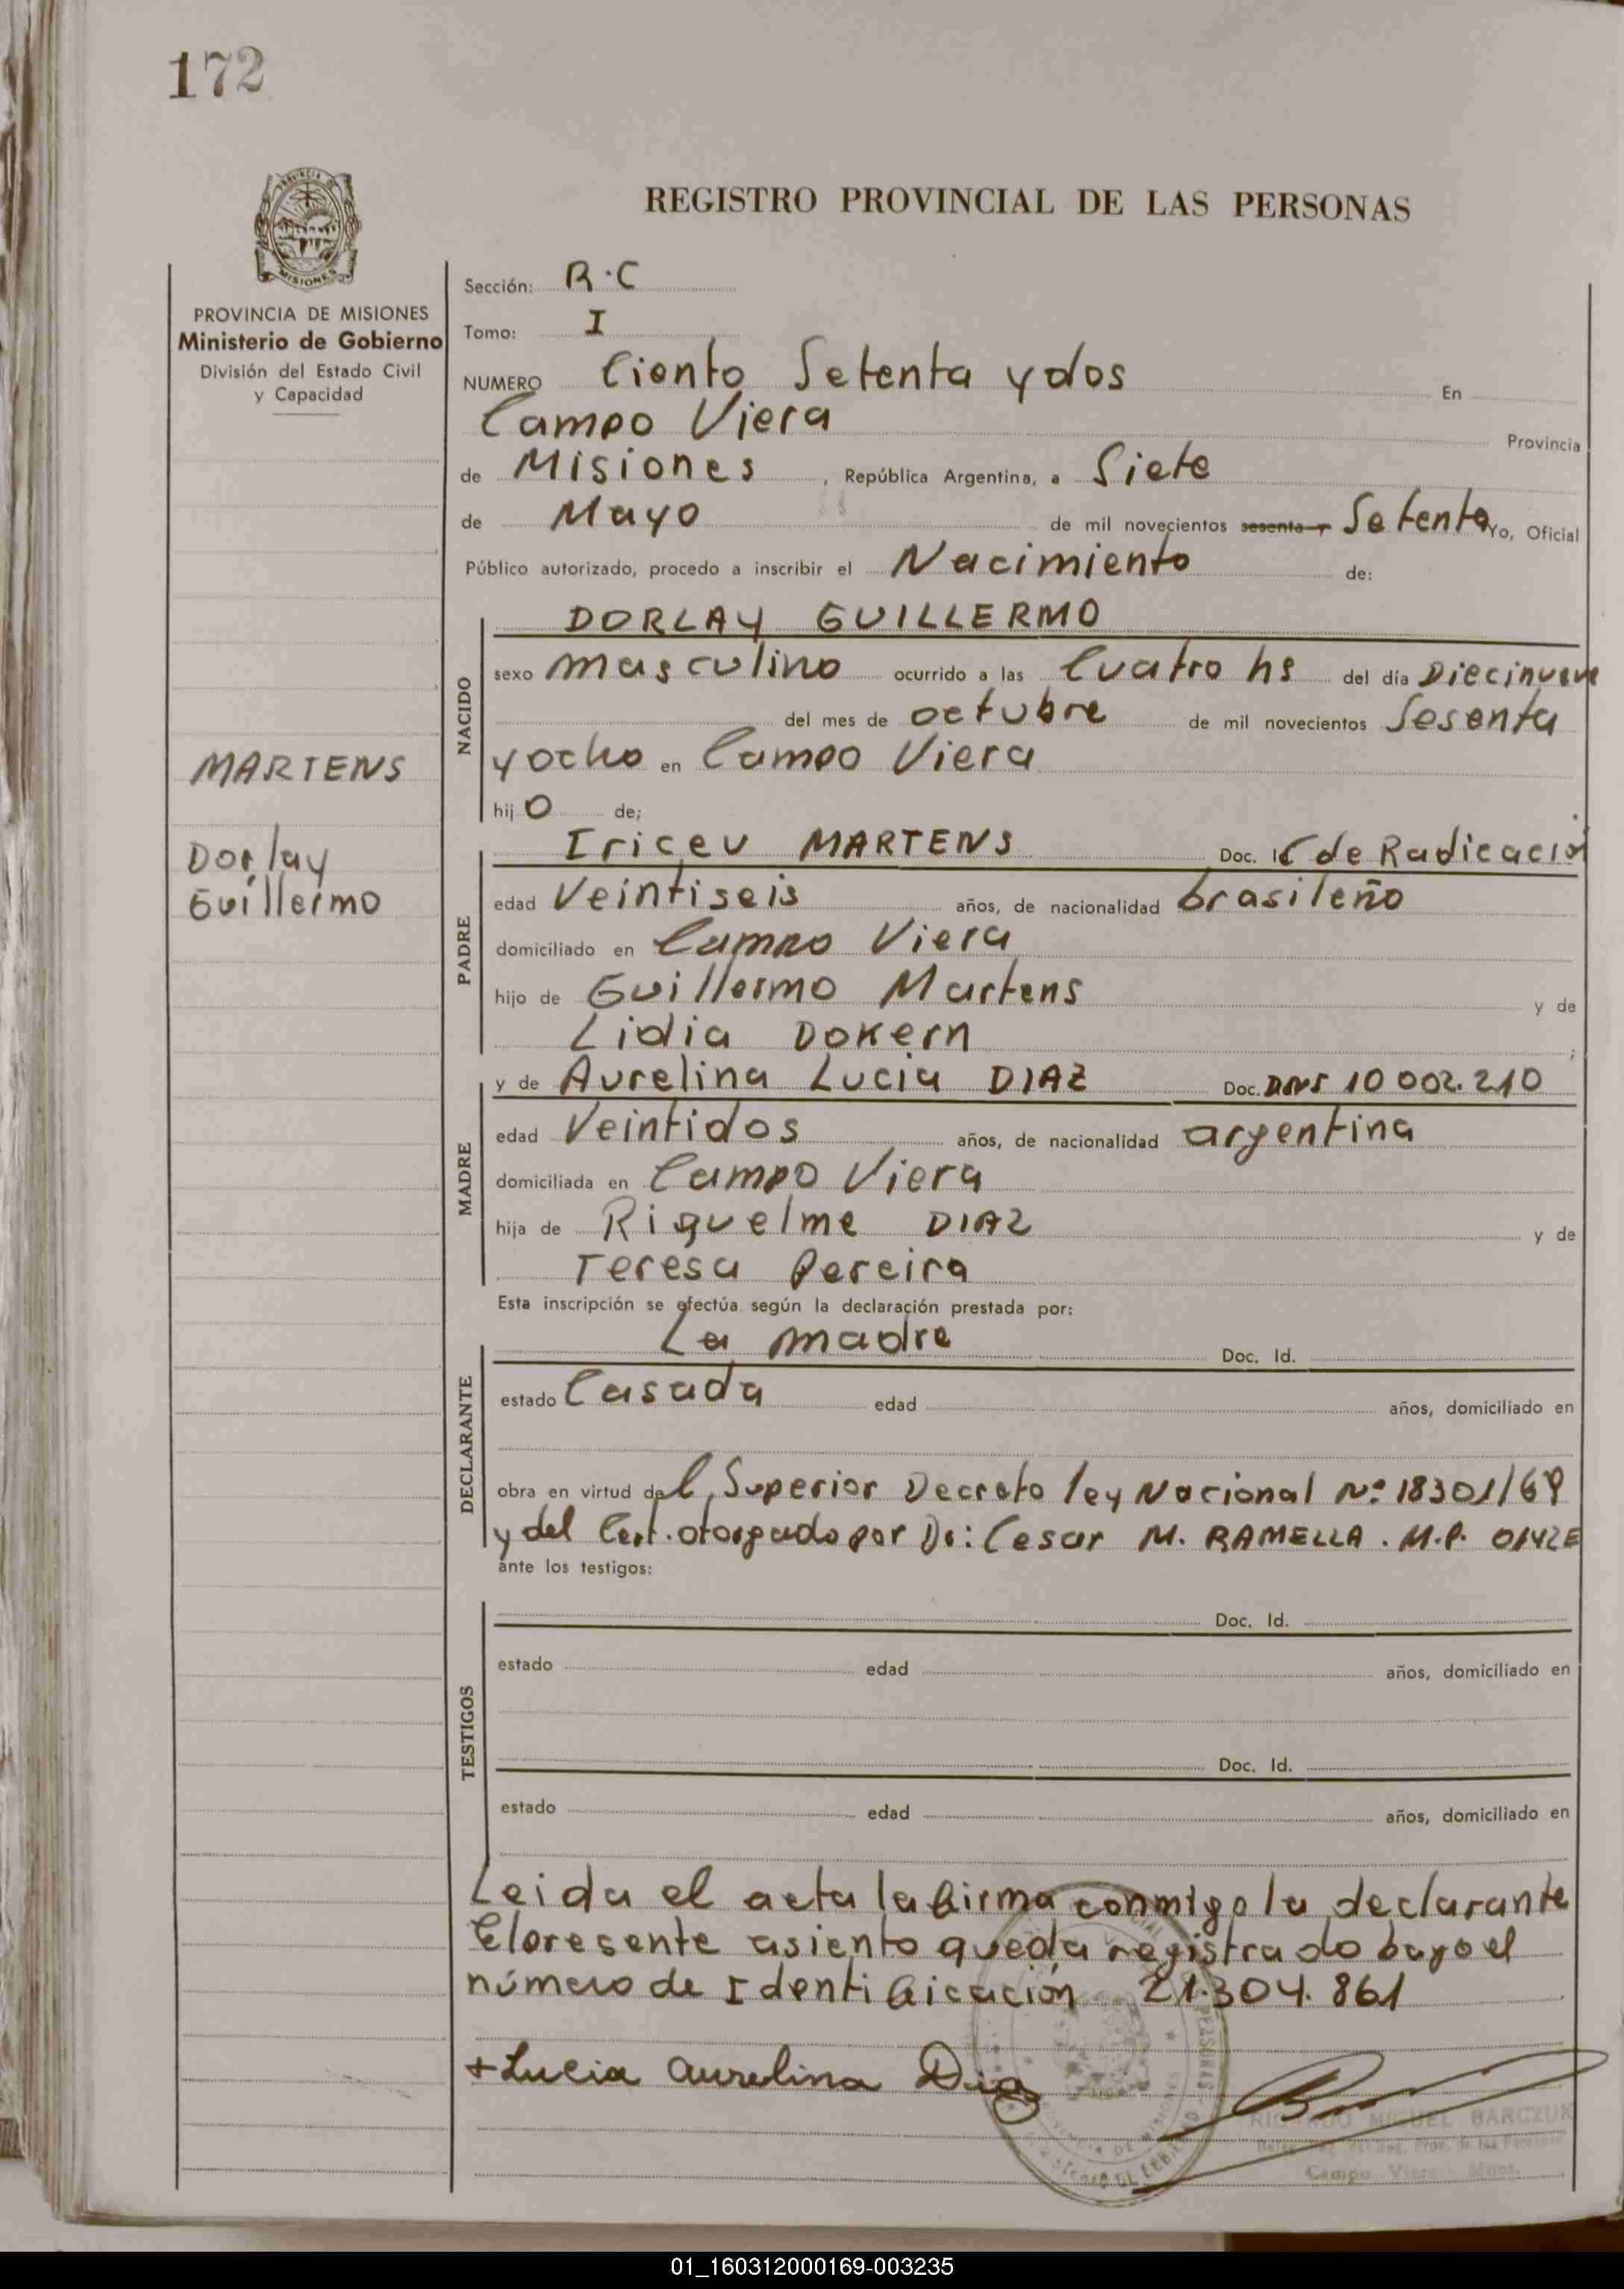 172
REGISTRO PROVINCIAL DE LAS PERSONAS
MISIONES
PROVINCIA DE MISIONES
Ministerio de Gobierno
División del Estado Civil
y Capacidad
Sección: R.C
Tomo: I
NUMERO Ciento Setenta y dos En
Campo Viera Provincia
de Misiones, República Argentina, a Siete
de Mayo de mil novecientos sesenta y Setenta Yo, Oficial
Público autorizado, procedo a inscribir el Nacimiento de:
NACIDO
DORLAY GUILLERMO
sexo masculino ocurrido a las Cuatro hs del día Diecinueve
del mes de octubre de mil novecientos Sesenta
y ocho en Campo Viera
hijo de;
MARTENS
Dorlay
Guillermo
PADRE
Iriceu MARTENS Doc. de Radicación
edad Veintiseis años, de nacionalidad brasileño
domiciliado en Campo Viera
hijo de Guillermo Martens y de
Lidia Dokern ;
MADRE
y de Aurelina Lucia DIAZ Doc. 10 002.210
edad Veintidos años, de nacionalidad argentina
domiciliada en Campo Viera
hija de Riquelme DIAZ y de
Teresa Pereira
Esta inscripción se efectúa según la declaración prestada por:
DECLARANTE
La madre Doc. Id.
estado Casada edad años, domiciliado en
obra en virtud del Superior Decreto ley Nacional Nº 18301/69
y del Cert. otorgado por Dr: Cesar M. RAMELLA. M.P. 0142E
ante los testigos:
TESTIGOS
Doc. Id.
estado edad años, domiciliado en
Doc. Id.
estado edad años, domiciliado en
Leida el acta la firma conmigo la declarante
El presente asiento queda registrado bajo el
número de Identificación 21.304.861
+Lucia Aurelina Diaz
RICARDO MIGUEL BARCZUK
Campo Viera - Mnes.
01_160312000169-003235